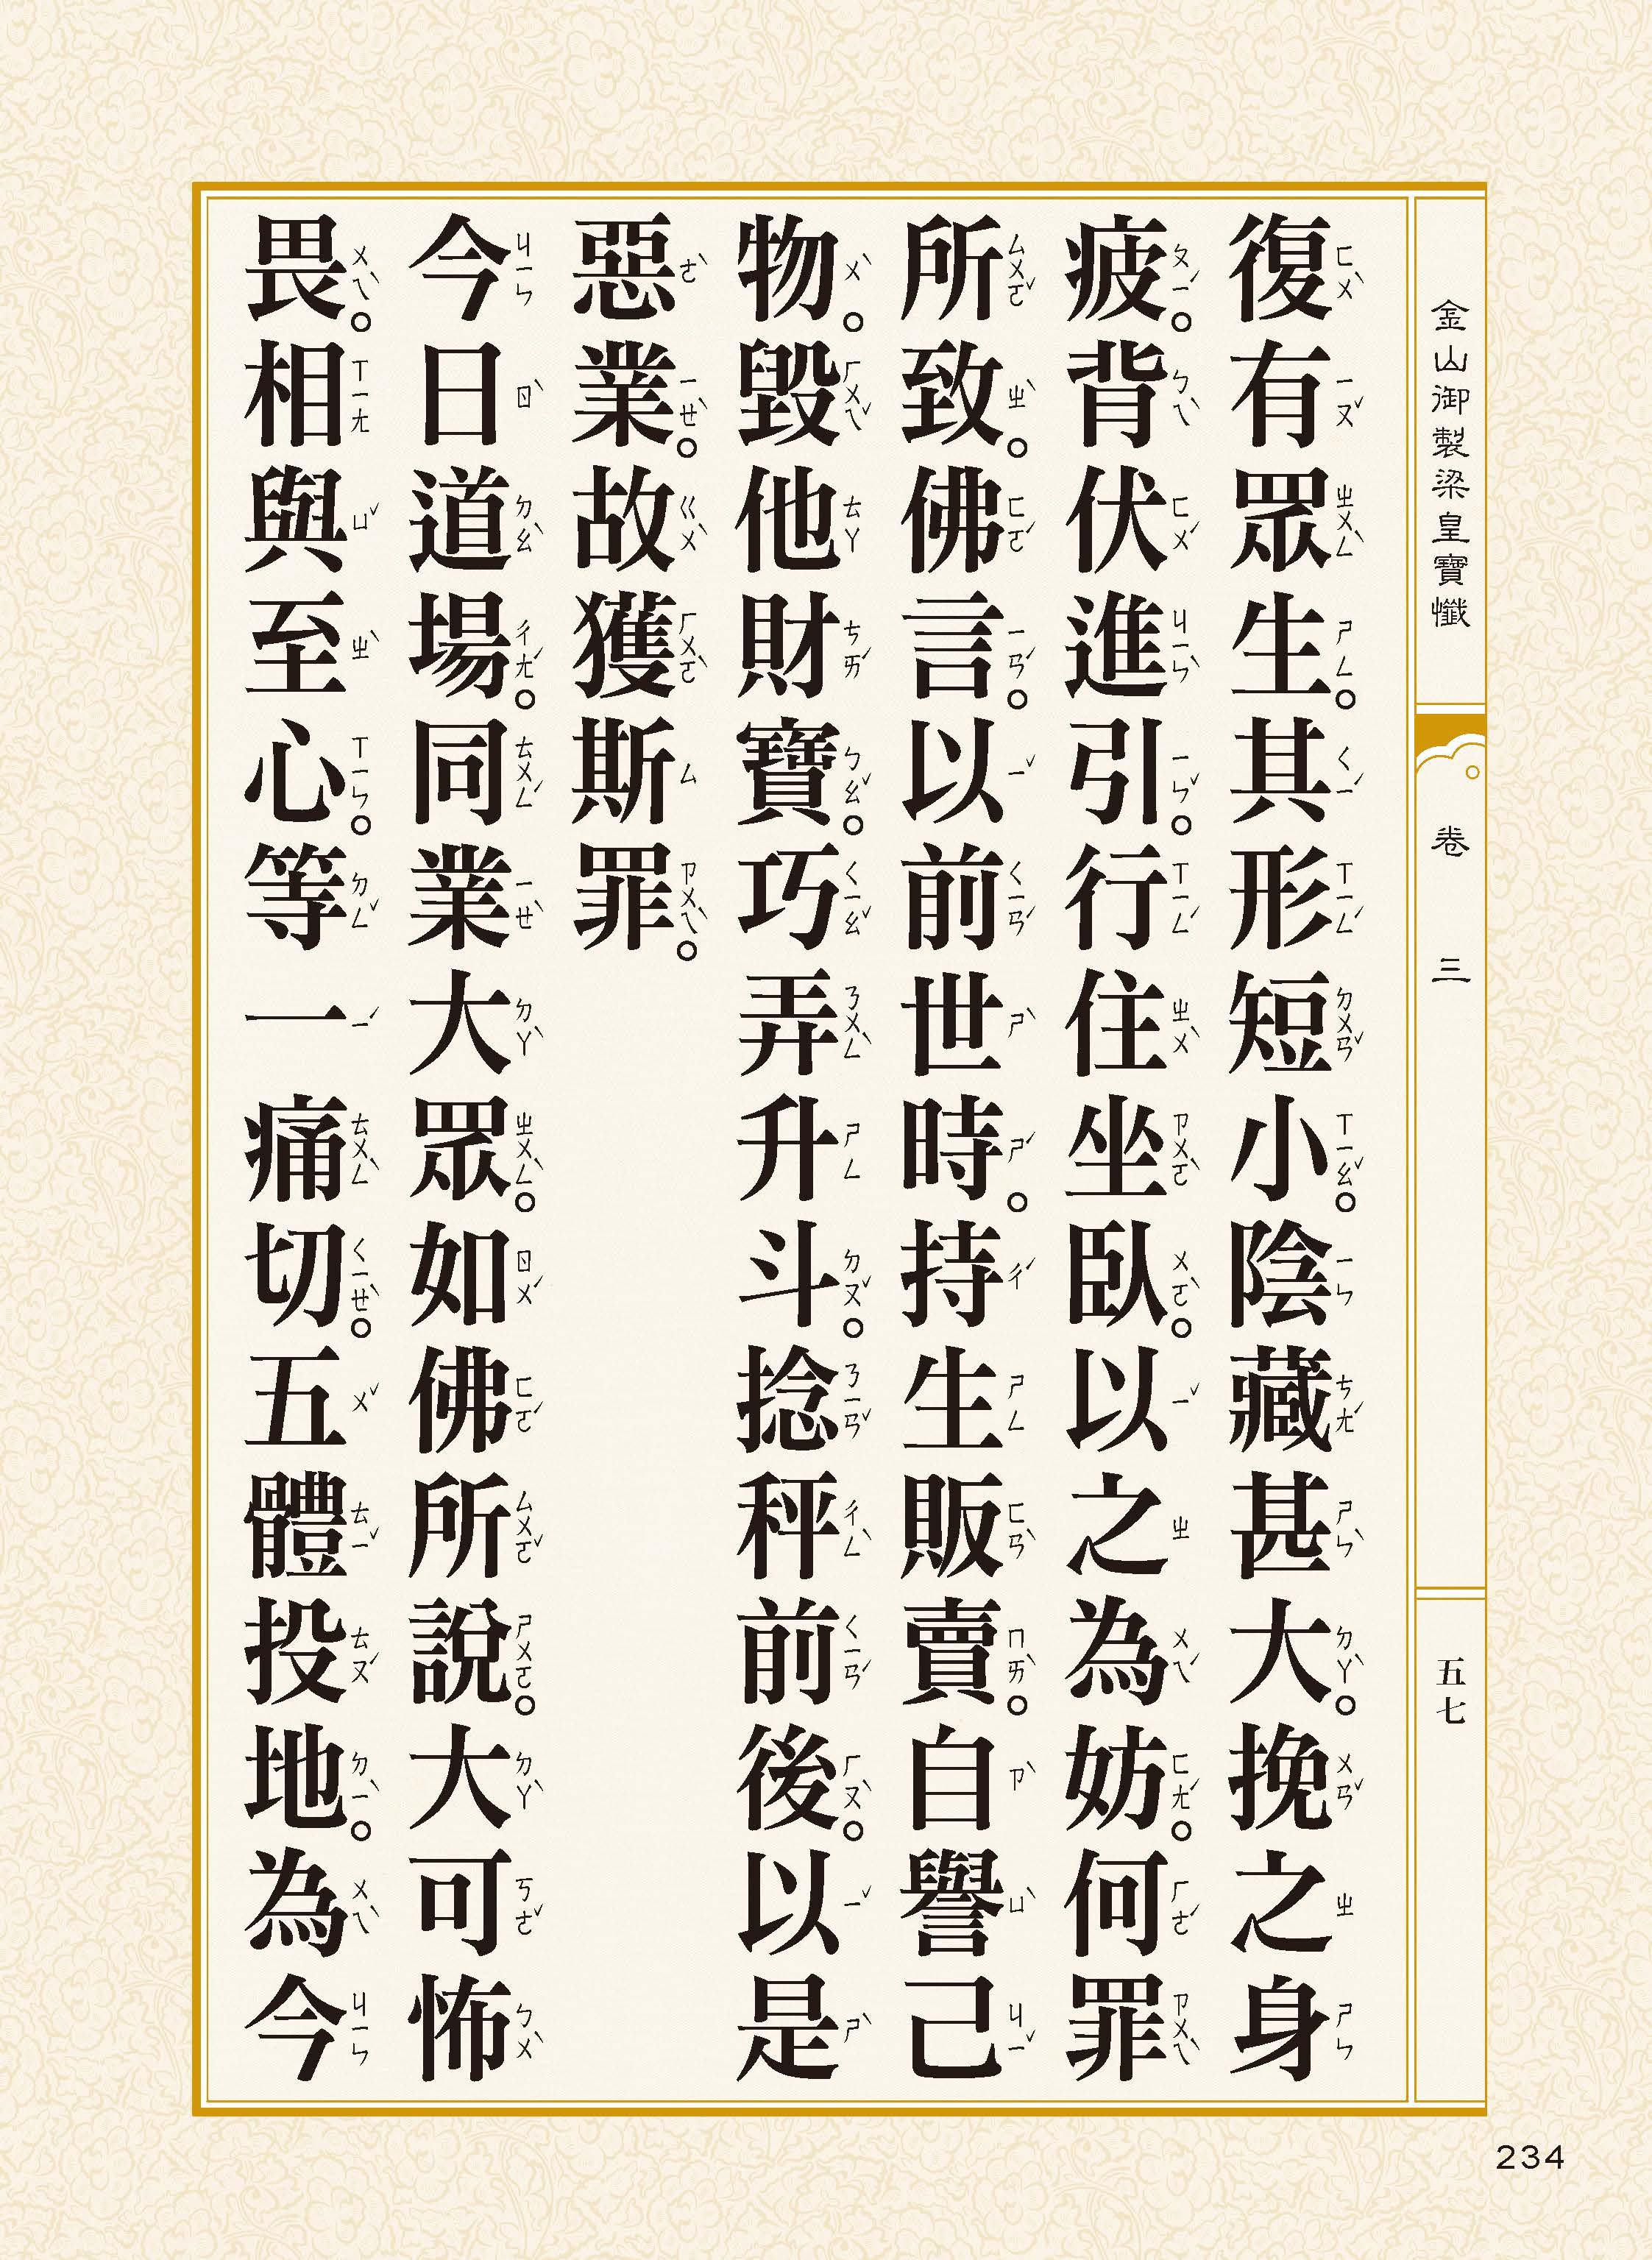 金山御製梁皇寶懺 卷三 五七
復有眾生。其形短小。陰藏甚大。挽之身
疲。背伏進引。行住坐臥。以之為妨。何罪
所致。佛言。以前世時。持生販賣。自譽己
物。毀他財寶。巧弄升斗。捻秤前後。以是
惡業。故獲斯罪。
今日道場。同業大眾。如佛所說。大可怖
畏。相與至心。等一痛切。五體投地。為今
234